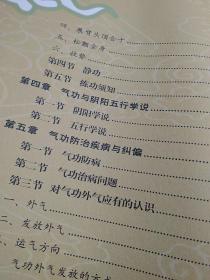 四、展臂头顶合十
五、松飘全身
六、收势
第四节 静功
第五节 练功须知
第四章 气功与阴阳五行学说
第一节 阴阳学说
第二节 五行学说
第五章 气功防治疾病与纠偏
第一节 气功防病
第二节 气功治病问题
第三节 对气功外气应有的认识
一、外气
二、发放外气
三、运气方向
气功外气发放的方式